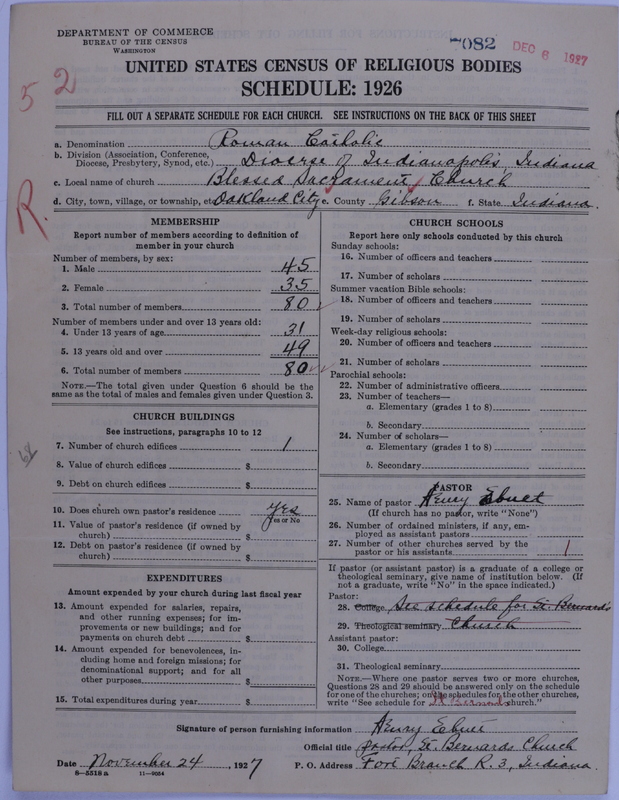 DEPARTMENT OF COMMERCE
BUREAU OF THE CENSUS
WASHINGTON
7082 DEC 8 1927
UNITED STATES CENSUS OF RELIGIOUS BODIES
SCHEDULE: 1926
52
R.
FILL OUT A SEPARATE SCHEDULE FOR EACH CHURCH. SEE INSTRUCTIONS ON THE BACK OF THIS SHEET
a. Denomination Roman Catholic
b. Division (Association, Conference, Diocese, Presbytery, Synod, etc.) Diocese of Indianapolis, Indiana
c. Local name of church Blessed Sacrament Church
d. City, town, village, or township, etc Oakland City e. County Gibson f. State Indiana.
MEMBERSHIP
Report number of members according to definition of
member in your church
Number of members, by sex:
1. Male 45
2. Female 35
3. Total number of members 80
Number of members under and over 13 years old:
4. Under 13 years of age 31
5. 13 years old and over 49
6. Total number of members 80
NOTE.—The total given under Question 6 should be the
same as the total of males and females given under Question 3.
CHURCH BUILDINGS
See instructions, paragraphs 10 to 12
7. Number of church edifices 1
8. Value of church edifices $
9. Debt on church edifices $
10. Does church own pastor's residence yes
Yes or No
11. Value of pastor's residence (if owned by
church) $
12. Debt on pastor's residence (if owned by
church) $
EXPENDITURES
Amount expended by your church during last fiscal year
13. Amount expended for salaries, repairs,
and other running expenses; for im-
provements or new buildings; and for
payments on church debt $
14. Amount expended for benevolences, in-
cluding home and foreign missions; for
denominational support; and for all
other purposes $
15. Total expenditures during year $
CHURCH SCHOOLS
Report here only schools conducted by this church
Sunday schools:
16. Number of officers and teachers
17. Number of scholars
Summer vacation Bible schools:
18. Number of officers and teachers
19. Number of scholars
Week-day religious schools:
20. Number of officers and teachers
21. Number of scholars
Parochial schools:
22. Number of administrative officers
23. Number of teachers—
a. Elementary (grades 1 to 8)
b. Secondary
24. Number of scholars—
a. Elementary (grades 1 to 8)
b. Secondary
PASTOR
25. Name of pastor Henry Ebnet
(If church has no pastor, write "None")
26. Number of ordained ministers, if any, em-
ployed as assistant pastors
27. Number of other churches served by the
pastor or his assistants 1
If pastor (or assistant pastor) is a graduate of a college or
theological seminary, give name of institution below. (If
not a graduate, write "No" in the space indicated.)
Pastor:
28. College See schedule for St. Bernard's
29. Theological seminary Church
Assistant pastor:
30. College
31. Theological seminary
NOTE.—Where one pastor serves two or more churches,
Questions 28 and 29 should be answered only on the schedule
for one of the churches; on the schedules for the other churches,
write "See schedule for St Bernards church."
Signature of person furnishing information Henry Ebnet
Official title Pastor, St. Bernards Church
Date November 24, 1927 P. O. Address Fort Branch R. 3, Indiana.
8—5518 a 11—9054